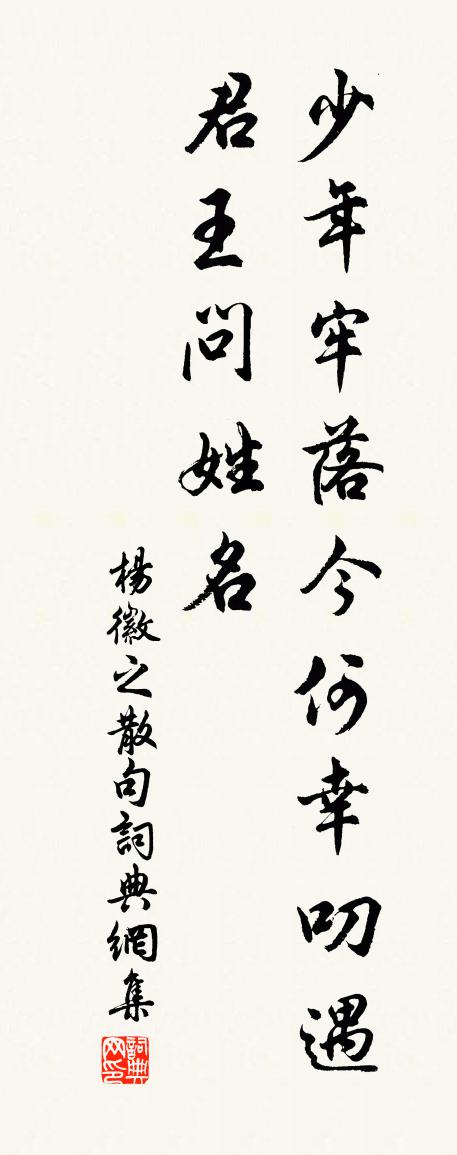 少年牢落今何幸叨遇
君王問姓名
楊徽之散句詞典網集
詞典网印